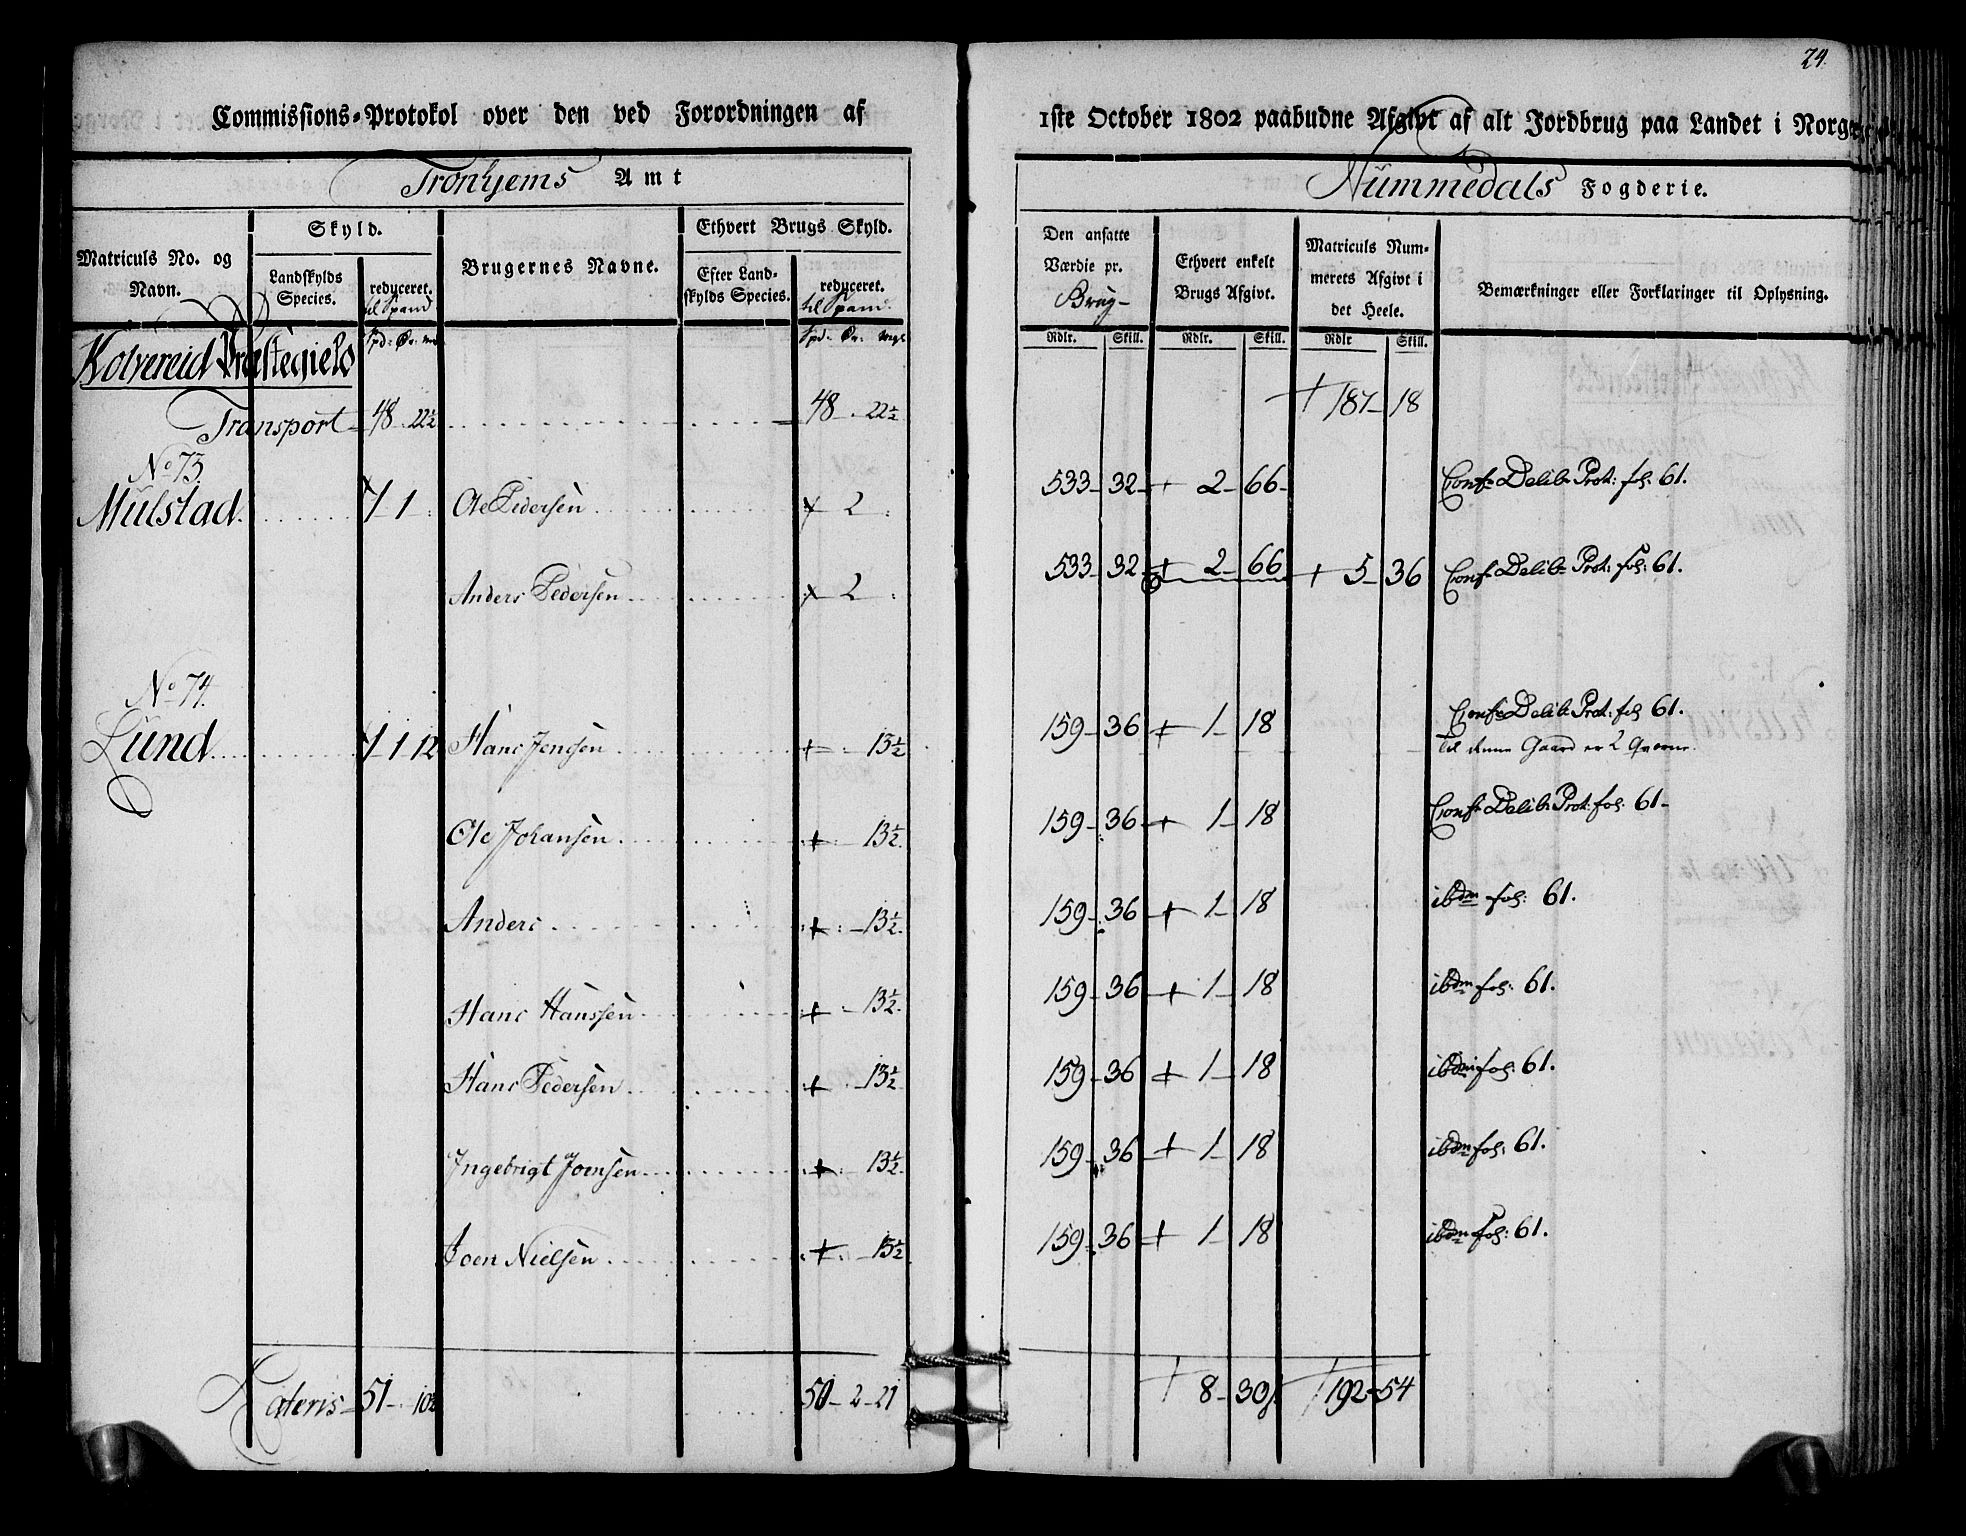 24.
Commissions-Protokol over den ved Forordningen af 1ste October 1802 paabudne Afgivt af alt Jordbrug paa Landet i Norge
Tronhjems Amt
Nummedals Fogderie.
Matriculs No. og Navn.
Skyld.
Landskylds Species.
reduceret. til Spand
Brugernes Navne.
Ethvert Brugs Skyld.
Efter Landskylds Species.
reduceret. til Spand.
Den ansatte Værdie pr. Brug
Ethvert enkelt Brugs Afgivt.
Matriculs Nummerets Afgivt i det Heele.
Bemærkninger eller Forklaringer til Oplysning.
Kolvereid Præstegield
Spd: Ør:
Spd: Ør: mgl
Rdlr. Skill. Rdlr. Skill. Rdlr Skill.
Transport 48 . 22½ 48 . 22½ 187 - 18
No 73.
Mulstad. 1 - 1 Ole Pedersen 2 533 - 32 - + 2 - 66 - Confr Delib Prot: fol: 61.
Anders Pedersen 2 533 - 32 + 2 - 66 + 5 - 36 Confr Delib Prot: fol: 61.
No 74.
Lund 1 - 1 12 Hans Jensen 13½ 159 - 36 + 1 - 18 Confr Delib Prot: fol 61.
Til denne Gaard er 2 Qverne.
Ole Johansen 13½ 159 - 36 + 1 - 18 Confr Delib Prot: fol: 61 -
Anders 13½ 159 - 36 + 1 - 18 ibdm fol: 61.
Hans Hanssen 13½ 159 - 36 + 1 - 18 ibdm fol: 61.
Hans Pedersen 13½ 159 - 36 + 1 - 18 ibdm fol: 61.
Ingebrigt Joensen 13½ 159 - 36 + 1 - 18 ibdm fol: 61.
Joen Nielsen 13½ 159 - 36 + 1 - 18 ibdm fol: 61.
Lateris 51 - . 10½ 50 - 2 - 21 8 - 30 192 - 54